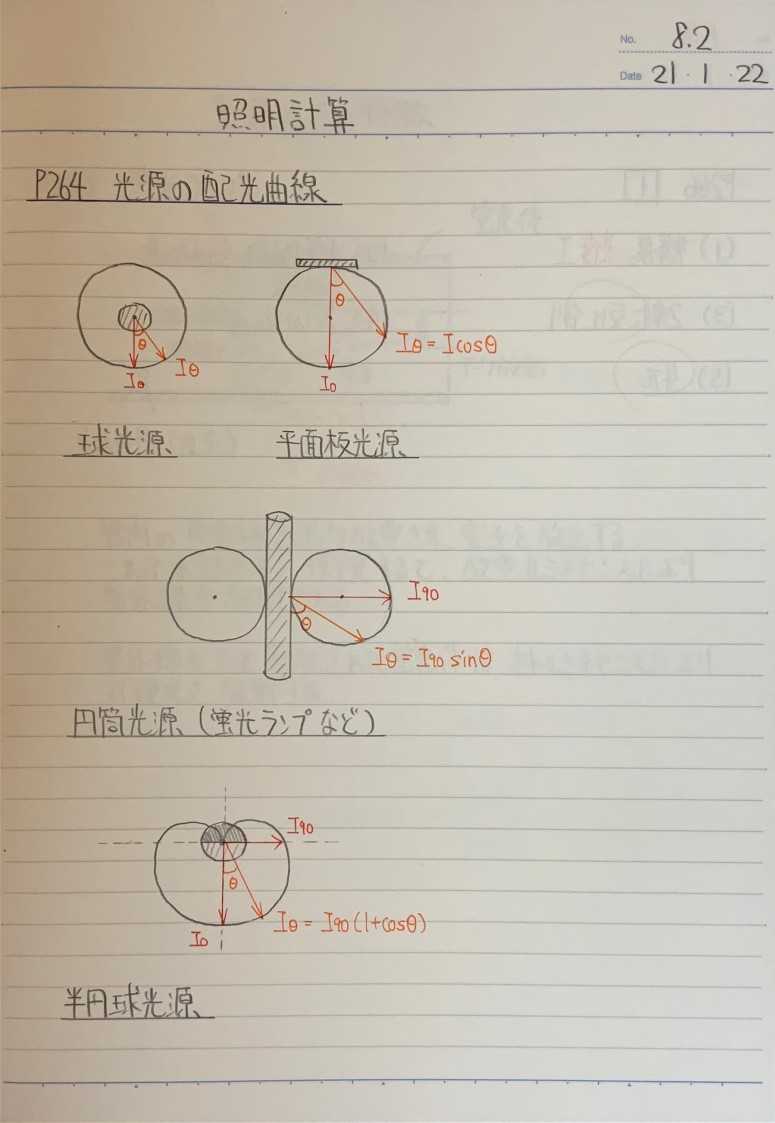 No. 8.2
Date 21・1・22
照明計算
P264 光源の配光曲線
θ
θ
I₀
Iθ
Iθ = Icosθ
I₀
球光源
平面板光源
I90
θ
Iθ = I90 sinθ
円筒光源(蛍光ランプなど)
I90
θ
Iθ = I90(1+cosθ)
I₀
半円球光源